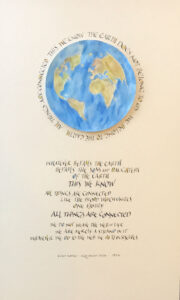 THIS WE KNOW THE EARTH DOES NOT BELONG TO US WE BELONG TO THE EARTH ALL THINGS ARE CONNECTED
WHATEVER BEFALLS THE EARTH
BEFALLS THE SONS AND DAUGHTERS
OF THE EARTH
THIS WE KNOW
ALL THINGS ARE CONNECTED
LIKE THE BLOOD WHICH UNITES
ONE FAMILY
ALL THINGS ARE CONNECTED
WE DO NOT WEAVE THE WEB OF LIFE
WE ARE MERELY A STRAND IN IT
WHATEVER WE DO TO THE WEB WE DO TO OURSELVES